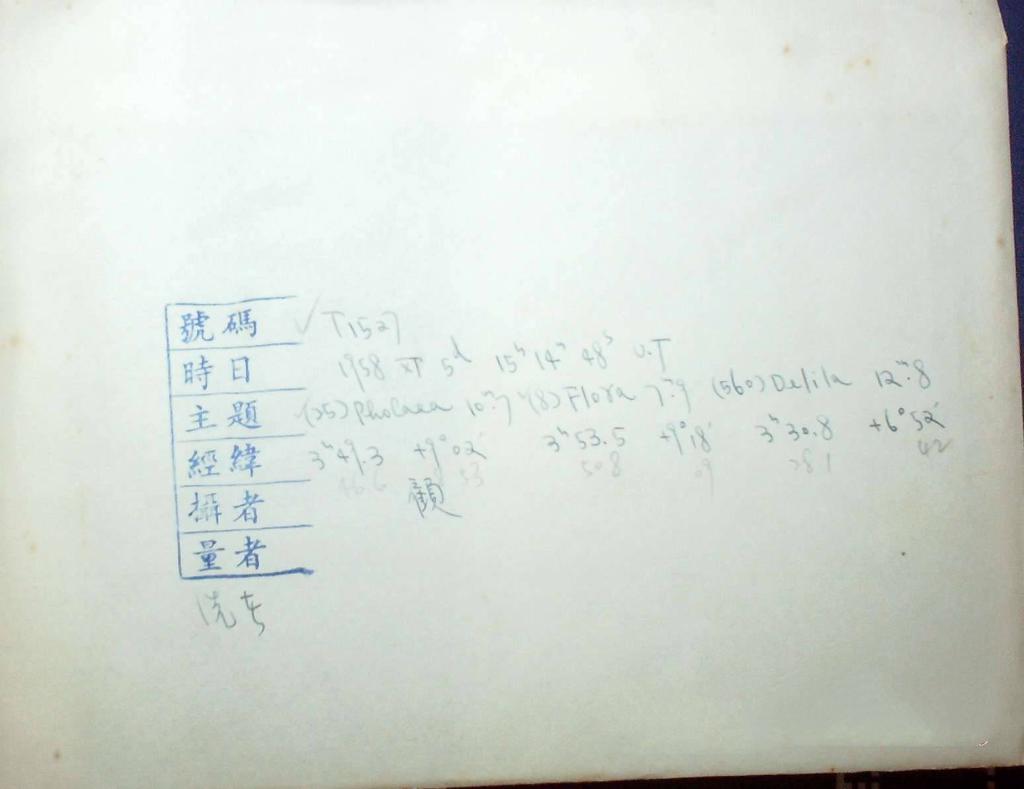 號碼 ✓ T1527
時日 1958 XI 5ᵈ 15ʰ 14ᵐ 48ˢ U.T
主題 (25) Phocaea 10ᵐ.7 (8) Flora 7ᵐ.9 (560) Delila 12ᵐ.8
經緯 3ʰ49.3 +9°02′ 3ʰ53.5 +9°18′ 3ʰ30.8 +6°52′
46.6 53 50.8 09 28.1 42
攝者 顧
量者